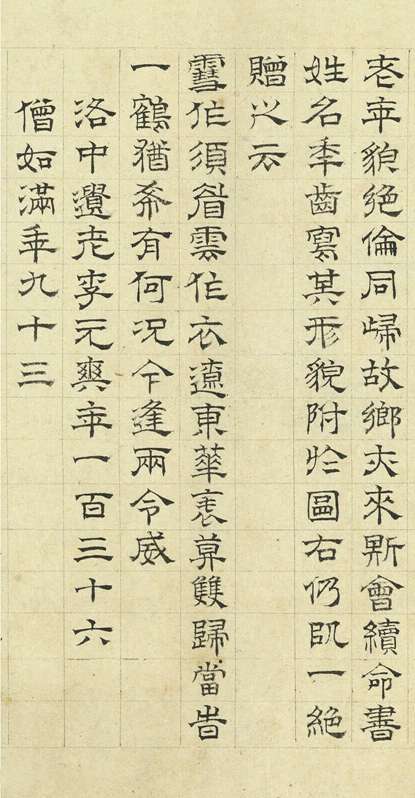 老年貌絕倫同歸故鄉亦來斯會續命書
姓名年齒寫其形貌附於圖右仍以一絕
贈之云
䨮作須眉雲作衣遼東華表暮雙歸當旹
一鶴猶希有何況今逢兩令威
洛中遺老李元爽年一百三十六
僧如滿年九十三